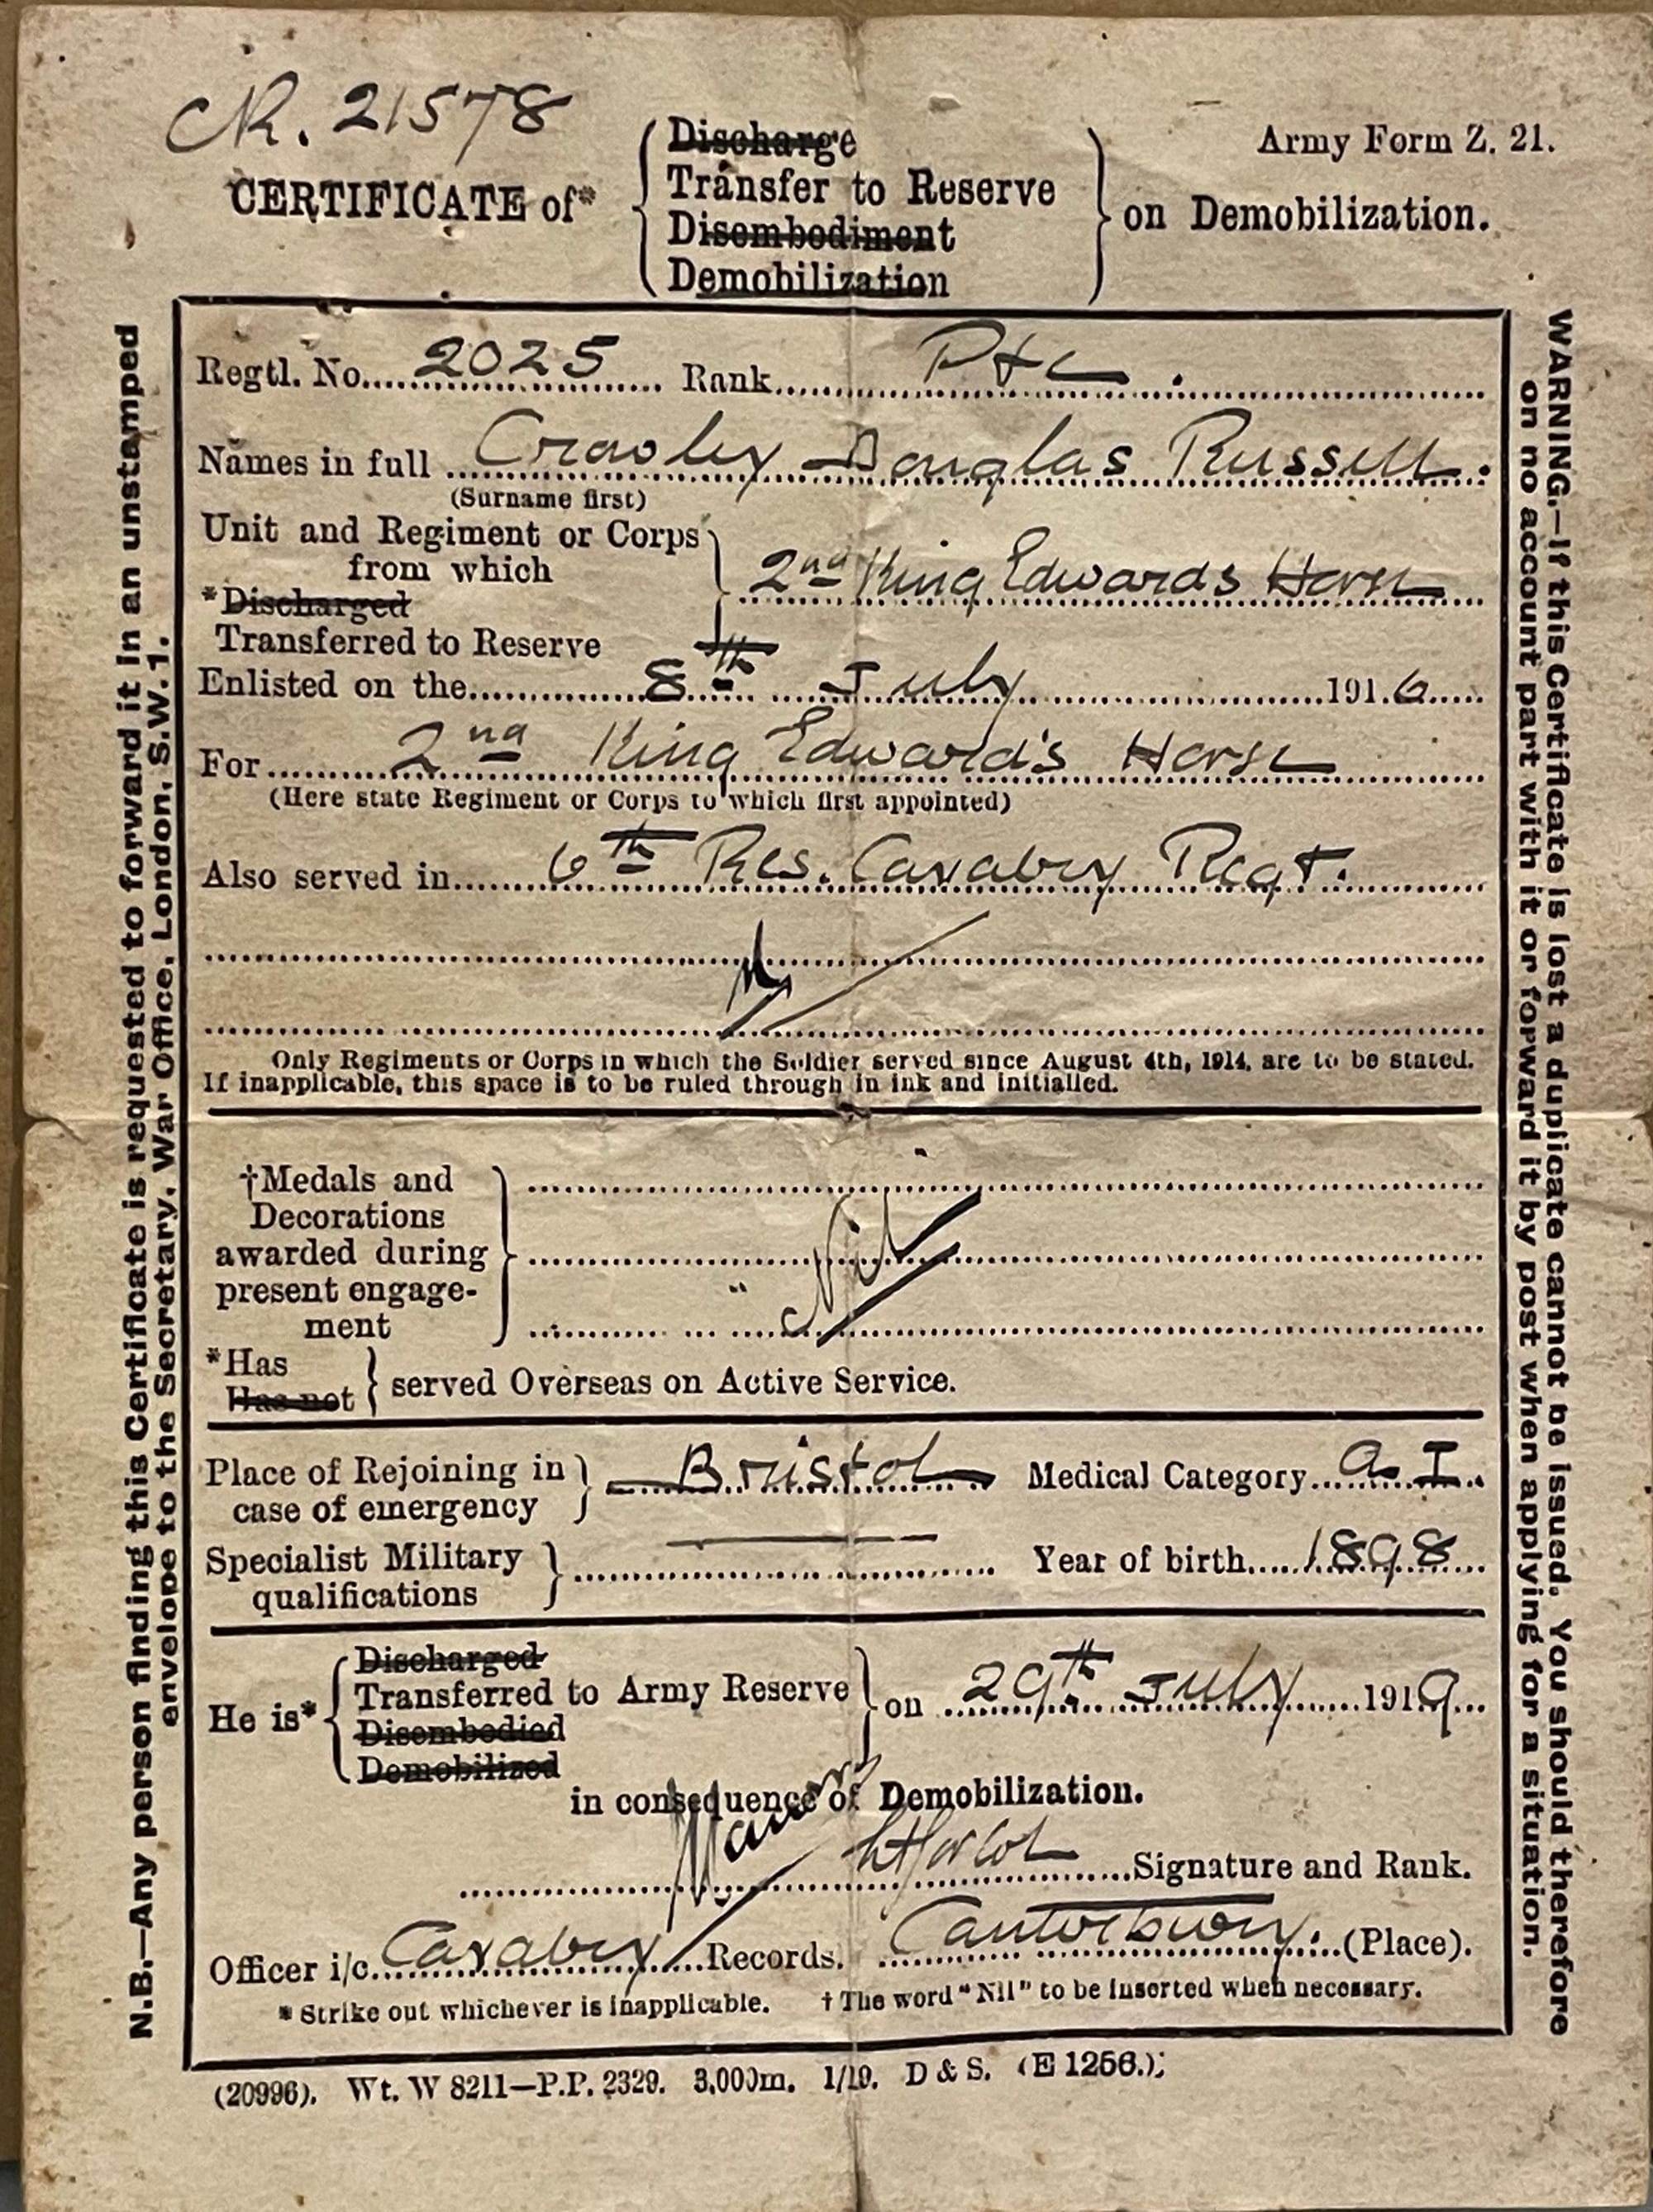 NR. 21578
Army Form Z. 21.
CERTIFICATE of*
Discharge
Transfer to Reserve
Disembodiment
Demobilization
on Demobilization.
Regtl. No. 2025 Rank Pte.
Names in full Crawley Douglas Russell.
(Surname first)
Unit and Regiment or Corps
from which
*Discharged
Transferred to Reserve
2nd King Edwards Horse
Enlisted on the 8th July 1916
For 2nd King Edward's Horse
(Here state Regiment or Corps to which first appointed)
Also served in 6th Res. Cavalry Regt.
Only Regiments or Corps in which the Soldier served since August 4th, 1914, are to be stated.
If inapplicable, this space is to be ruled through in ink and initialled.
†Medals and
Decorations
awarded during
present engage-
ment
Nil
*Has
Has not
served Overseas on Active Service.
Place of Rejoining in
case of emergency
Bristol Medical Category A I.
Specialist Military
qualifications
Year of birth 1898
He is*
Discharged
Transferred to Army Reserve
Disembodied
Demobilized
on 29th July 1919
in consequence of Demobilization.
Signature and Rank.
Officer i/c Cavalry Records. Canterbury. (Place).
* Strike out whichever is inapplicable. † The word "Nil" to be inserted when necessary.
(20996). Wt. W 8211—P.P. 2329. 3,000m. 1/19. D & S. (E 1256.)
N.B.—Any person finding this Certificate is requested to forward it in an unstamped
envelope to the Secretary, War Office, London, S.W.1.
WARNING.—If this Certificate is lost a duplicate cannot be issued. You should therefore
on no account part with it or forward it by post when applying for a situation.